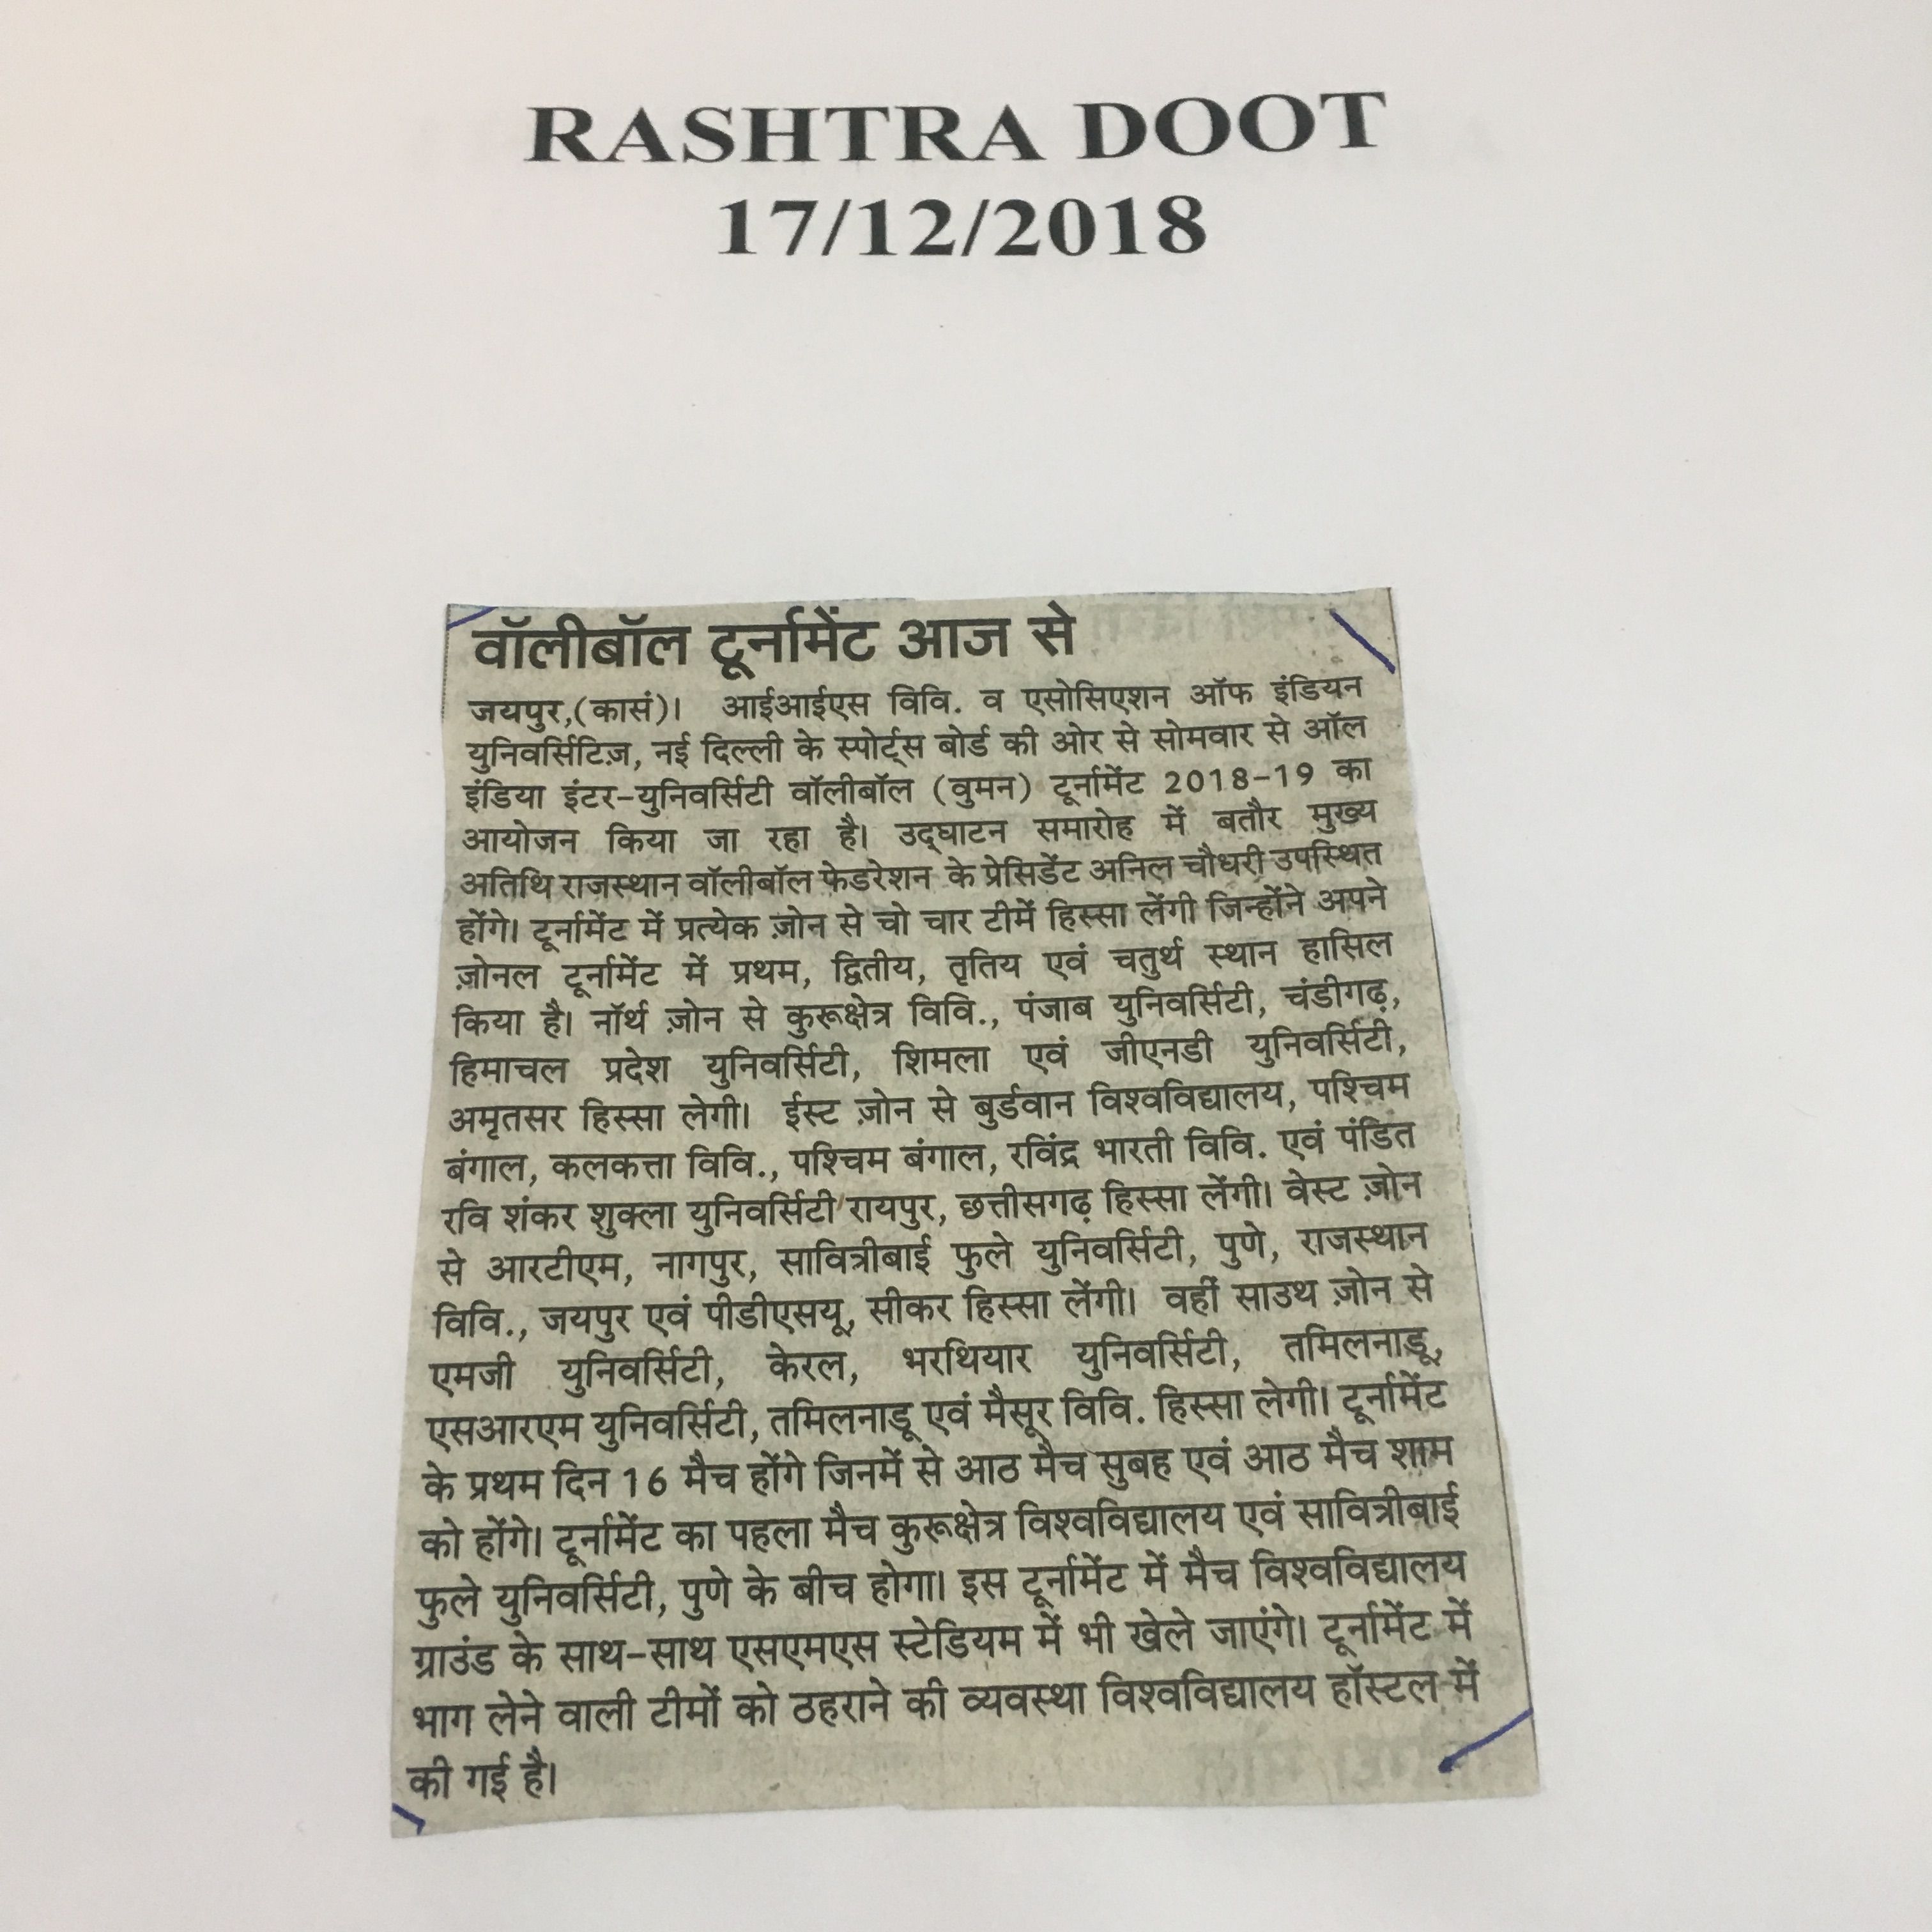 RASHTRA DOOT
17/12/2018
वॉलीबॉल टूर्नामेंट आज से
जयपुर,(कासं)। आईआईएस विवि. व एसोसिएशन ऑफ इंडियन
युनिवर्सिटिज़, नई दिल्ली के स्पोर्ट्स बोर्ड की ओर से सोमवार से ऑल
इंडिया इंटर-युनिवर्सिटी वॉलीबॉल (वुमन) टूर्नामेंट 2018-19 का
आयोजन किया जा रहा है। उद्घाटन समारोह में बतौर मुख्य
अतिथि राजस्थान वॉलीबॉल फेडरेशन के प्रेसिडेंट अनिल चौधरी उपस्थित
होंगे। टूर्नामेंट में प्रत्येक ज़ोन से चो चार टीमें हिस्सा लेंगी जिन्होंने अपने
ज़ोनल टूर्नामेंट में प्रथम, द्वितीय, तृतिय एवं चतुर्थ स्थान हासिल
किया है। नॉर्थ ज़ोन से कुरूक्षेत्र विवि., पंजाब युनिवर्सिटी, चंडीगढ़,
हिमाचल प्रदेश युनिवर्सिटी, शिमला एवं जीएनडी युनिवर्सिटी,
अमृतसर हिस्सा लेगी। ईस्ट ज़ोन से बुर्डवान विश्वविद्यालय, पश्चिम
बंगाल, कलकत्ता विवि., पश्चिम बंगाल, रविंद्र भारती विवि. एवं पंडित
रवि शंकर शुक्ला युनिवर्सिटी रायपुर, छत्तीसगढ़ हिस्सा लेंगी। वेस्ट ज़ोन
से आरटीएम, नागपुर, सावित्रीबाई फुले युनिवर्सिटी, पुणे, राजस्थान
विवि., जयपुर एवं पीडीएसयू, सीकर हिस्सा लेंगी। वहीं साउथ ज़ोन से
एमजी युनिवर्सिटी, केरल, भरथियार युनिवर्सिटी, तमिलनाडू,
एसआरएम युनिवर्सिटी, तमिलनाडू एवं मैसूर विवि. हिस्सा लेगी। टूर्नामेंट
के प्रथम दिन 16 मैच होंगे जिनमें से आठ मैच सुबह एवं आठ मैच शाम
को होंगे। टूर्नामेंट का पहला मैच कुरूक्षेत्र विश्वविद्यालय एवं सावित्रीबाई
फुले युनिवर्सिटी, पुणे के बीच होगा। इस टूर्नामेंट में मैच विश्वविद्यालय
ग्राउंड के साथ-साथ एसएमएस स्टेडियम में भी खेले जाएंगे। टूर्नामेंट में
भाग लेने वाली टीमों को ठहराने की व्यवस्था विश्वविद्यालय हॉस्टल में
की गई है।